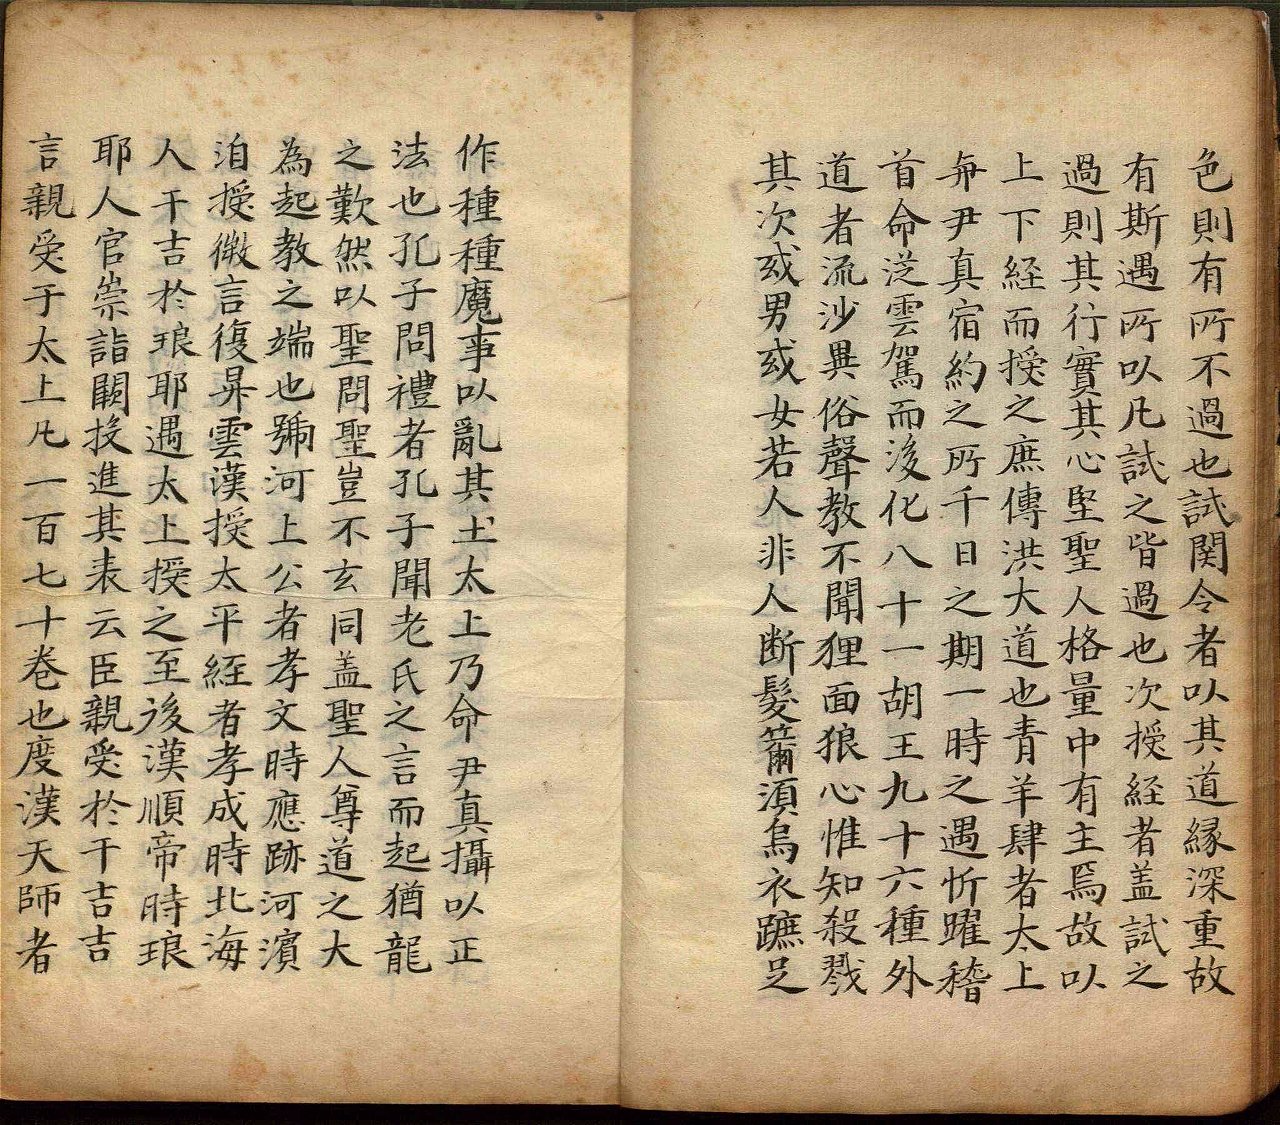 色則有所不過也試関令者以其道縁深重故
有斯遇所以凡試之皆過也次授経者盖試之
過則其行實其心堅聖人格量中有主焉故以
上下経而授之庶傳洪大道也青羊肆者太上
弁尹真宿約之所千日之期一時之遇忻躍稽
首命泛雲駕而後化八十一胡王九十六種外
道者流沙異俗聲教不聞狸面狼心惟知殺戮
其次或男或女若人非人断髮須烏衣蹠足
作種種魔事以亂其土太上乃命尹真攝以正
法也孔子問禮者孔子聞老氏之言而起猶龍
之歎然以聖問聖豈不玄同盖聖人尊道之大
為起教之端也號河上公者孝文時應跡河濱
洎授微言復昇雲漢授太平経者孝成時北海
人干吉於琅耶遇太上授之至後漢順帝時琅
耶人官崇詣闕投進其表云臣親受於干吉吉
言親受于太上凡一百七十卷也度漢天師者